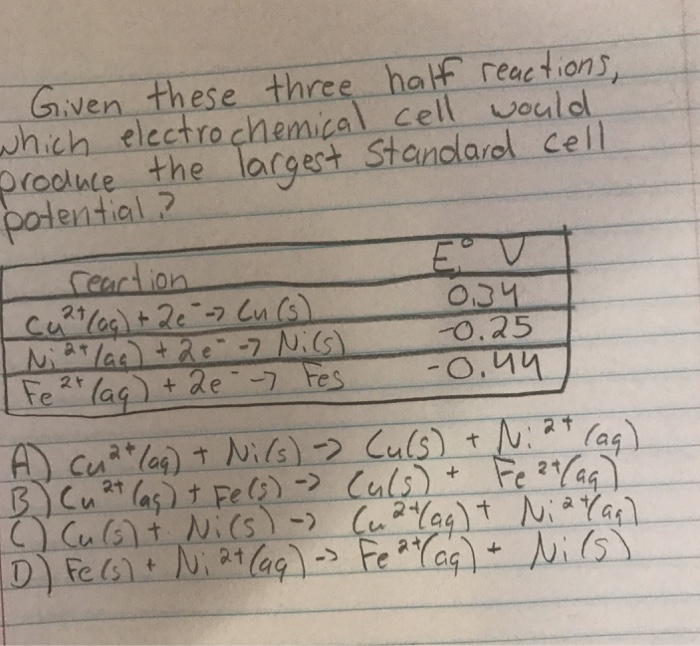 Given these three half reactions,
which electrochemical cell would
produce the largest Standard cell
potential?
reaction E° V
Cu²⁺(aq) + 2e⁻ → Cu(s) 0.34
Ni²⁺(aq) + 2e⁻ → Ni(s) -0.25
Fe²⁺(aq) + 2e⁻ → Fes -0.44
A) Cu²⁺(aq) + Ni(s) → Cu(s) + Ni²⁺(aq)
B) Cu²⁺(aq) + Fe(s) → Cu(s) + Fe²⁺(aq)
C) Cu(s) + Ni(s) → Cu²⁺(aq) + Ni²⁺(aq)
D) Fe(s) + Ni²⁺(aq) → Fe²⁺(aq) + Ni(s)